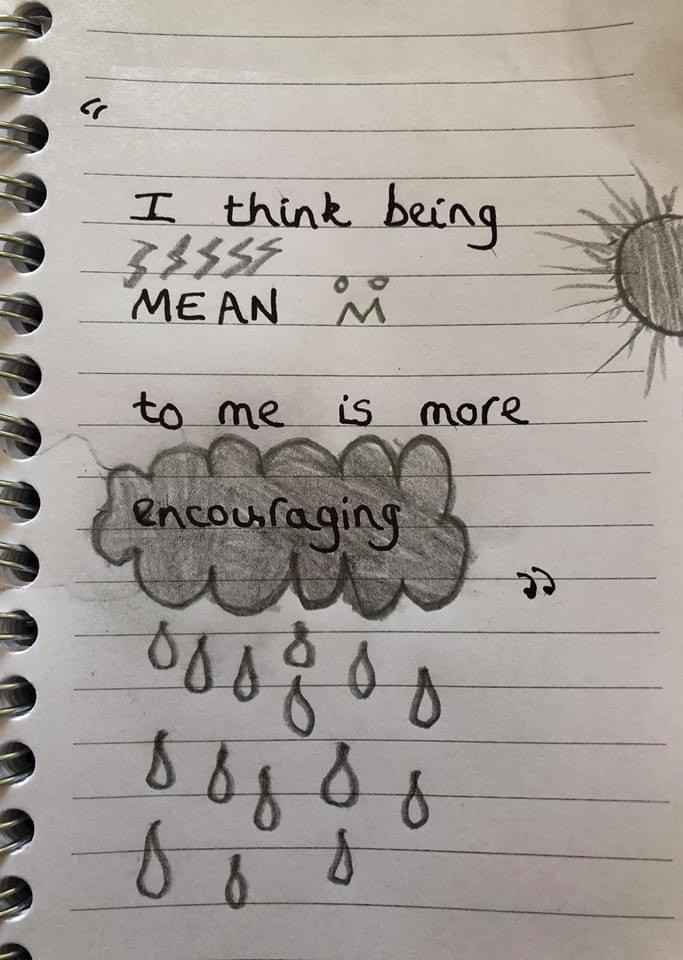 “
I think being
MEAN
to me is more
encouraging
”